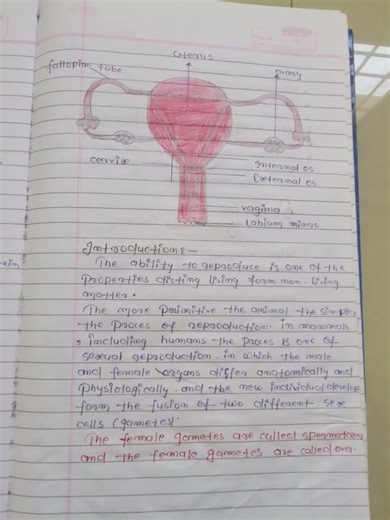 Uterus
fallopian tube
ovary
cervix
Internal os
External os
vagina
Labium minus
Introductions-
The ability to reproduce is one of the
Properties disting living form non-living
matter.
The more primitive the animal the simpler
the proces of reproduction. in mammals
, including humans the proces is one of
sexual reproduction. in which the male
and female organs differ anatomically and
Physiologically. and the new individual develops
form the fusion of two different sex
cells (gametes).
The female gametes are called spermatozoa
and the female gametes are called ova.